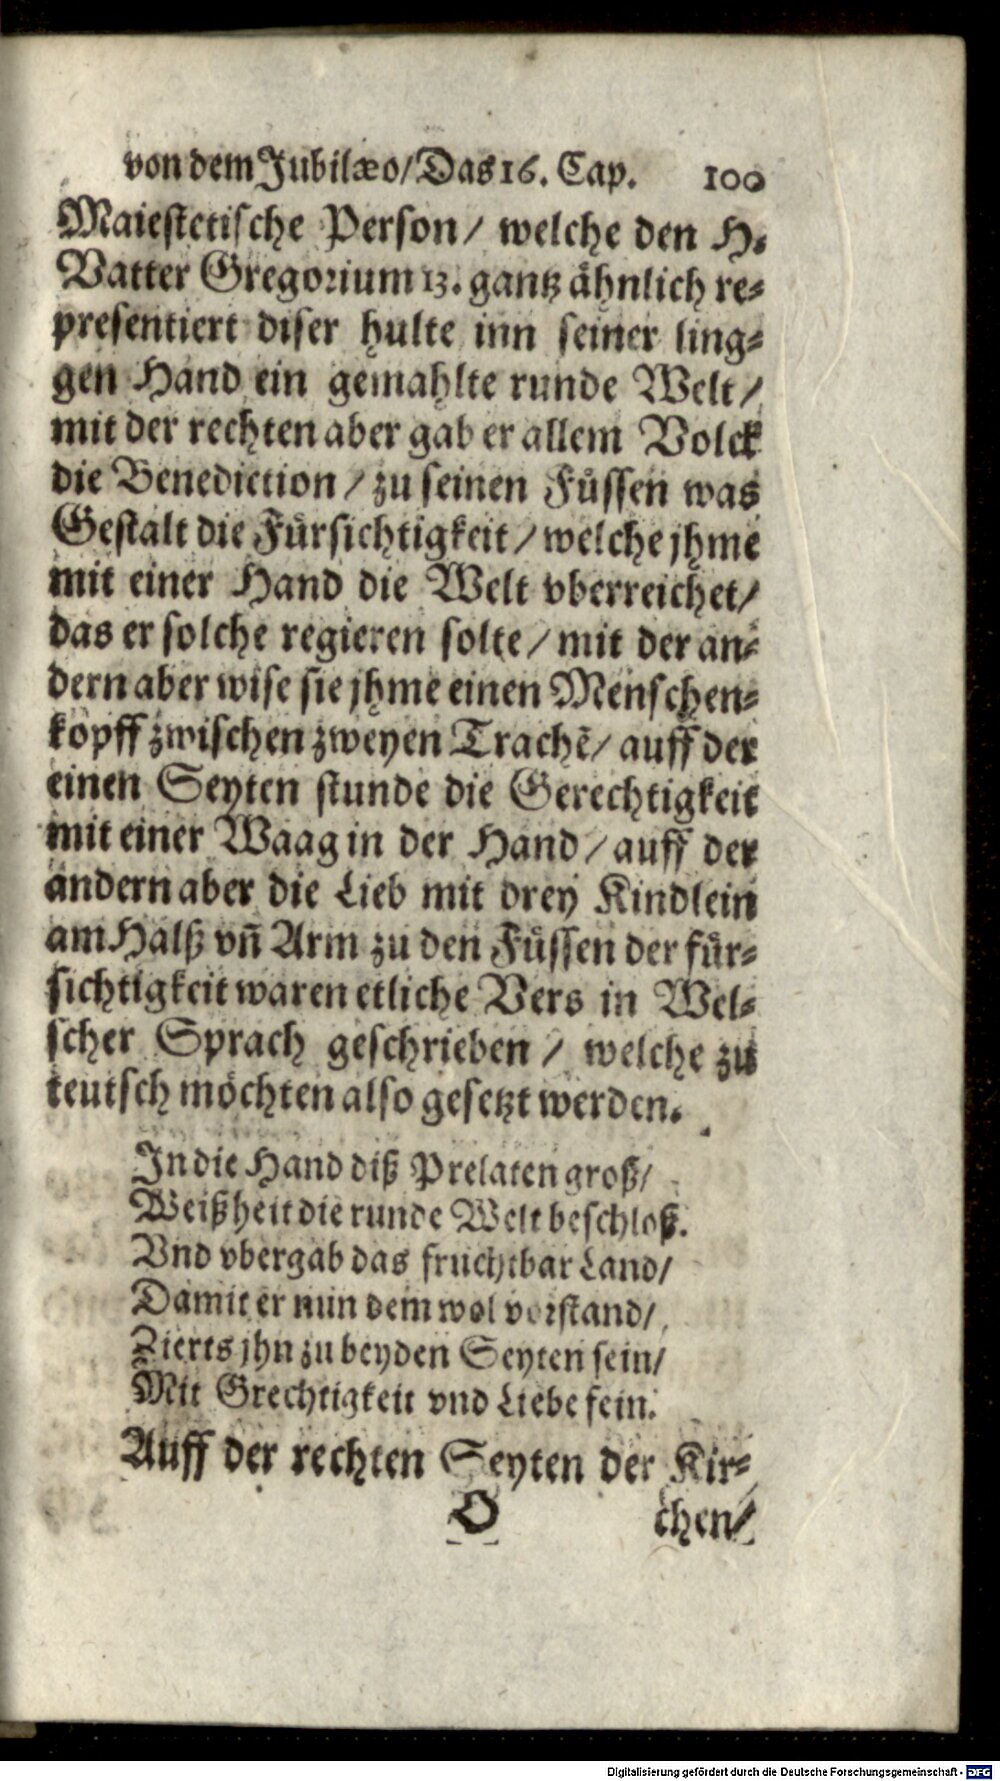 von dem Jubilæo/ Das 16. Cap. 100
Maiestetische Person/ welche den H.
Vatter Gregorium 13. gantz ähnlich re-
presentiert diser hulte inn seiner ling-
gen Hand ein gemahlte runde Welt/
mit der rechten aber gab er allem Volck
die Benediction/ zu seinen Füssen was
Gestalt die Fürsichtigkeit/ welche jhme
mit einer Hand die Welt vberreichet/
das er solche regieren solte/ mit der an-
dern aber wise sie jhme einen Menschen-
kopff zwischen zweyen Trachẽ/ auff der
einen Seyten stunde die Gerechtigkeit
mit einer Waag in der Hand/ auff der
andern aber die Lieb mit drey Kindlein
am Halß vñ Arm zu den Füssen der für-
sichtigkeit waren etliche Vers in Wel-
scher Sprach geschrieben/ welche zu
teutsch möchten also gesetzt werden.
In die Hand diß Prelaten groß/
Weißheit die runde Welt beschloß.
Vnd vbergab das fruchtbar Land/
Damit er nun dem wol vorstand/
Zierts jhn zu beyden Seyten sein/
Mit Grechtigkeit vnd Liebe fein.
Auff der rechten Seyten der Kir-
O chen/
Digitalisierung gefördert durch die Deutsche Forschungsgemeinschaft - DFG